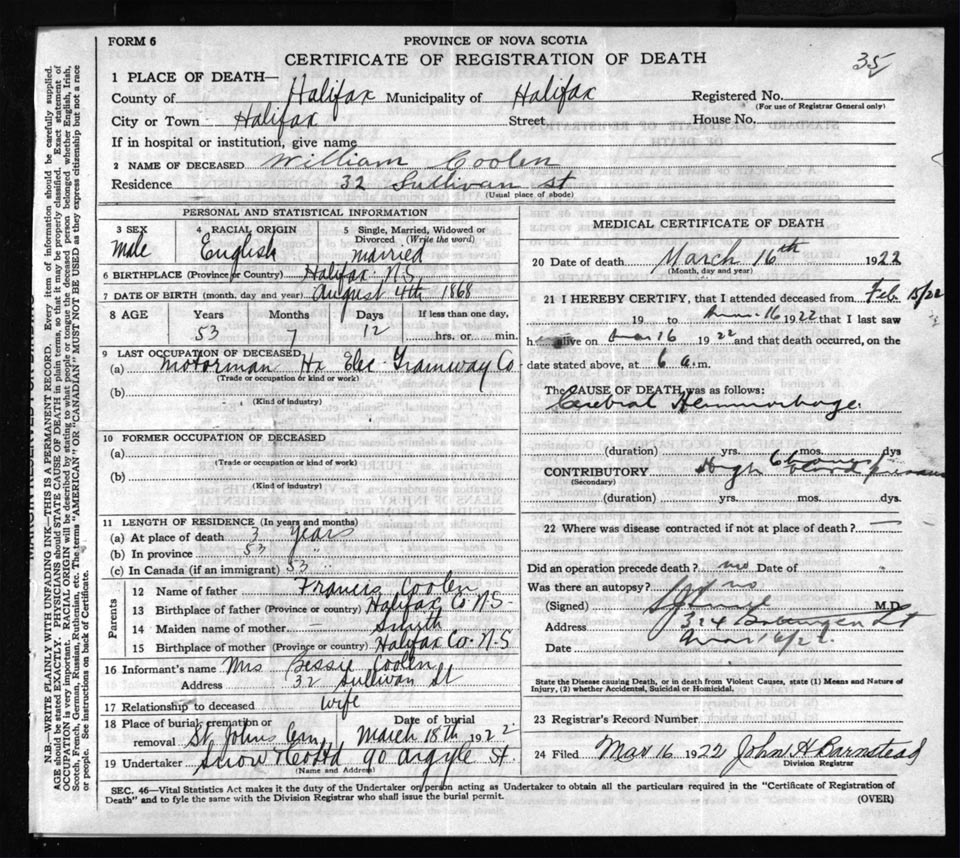 FORM 6
PROVINCE OF NOVA SCOTIA
CERTIFICATE OF REGISTRATION OF DEATH
35
1 PLACE OF DEATH—
County of Halifax Municipality of Halifax Registered No.
(For use of Registrar General only)
City or Town Halifax Street House No.
If in hospital or institution, give name
2 NAME OF DECEASED William Coolen
Residence 32 Sullivan St
(Usual place of abode)
PERSONAL AND STATISTICAL INFORMATION
3 SEX Male
4 RACIAL ORIGIN English
5 Single, Married, Widowed or Divorced (Write the word) married
6 BIRTHPLACE (Province or Country) Halifax N.S
7 DATE OF BIRTH (month, day and year) August 4th 1868
8 AGE Years Months Days If less than one day,
53 7 12 hrs. or min.
9 LAST OCCUPATION OF DECEASED
(a) Motorman Hx Elec Tramway Co
(Trade or occupation or kind or work)
(b)
(Kind of industry)
10 FORMER OCCUPATION OF DECEASED
(a)
(Trade or occupation or kind of work)
(b)
(Kind of industry)
11 LENGTH OF RESIDENCE (In years and months)
(a) At place of death 3 years
(b) In province 53 "
(c) In Canada (if an immigrant) 53 "
Parents
12 Name of father Francis Coolen
13 Birthplace of father (Province or country) Halifax Co N.S-
14 Maiden name of mother — Smith
15 Birthplace of mother (Province or country) Halifax Co. N.S
16 Informant's name Mrs Bessie Coolen
Address 32 Sullivan St
17 Relationship to deceased wife
18 Place of burial, cremation or removal St Johns Cem
Date of burial March 18th 1922
19 Undertaker Snow & Co Ltd 90 Argyle St.
(Name and Address)
MEDICAL CERTIFICATE OF DEATH
20 Date of death March 16th 1922
(Month, day and year)
21 I HEREBY CERTIFY, that I attended deceased from Feb. 15/22
19 to Mar. 16 1922 that I last saw
h alive on Mar 16 1922 and that death occurred, on the
date stated above, at 6 a.m.
The CAUSE OF DEATH was as follows:
Cerebral Hemmorhage
(duration) yrs. mos. dys
CONTRIBUTORY High
(Secondary)
(duration) yrs. mos. dys.
22 Where was disease contracted if not at place of death? —
Did an operation precede death? no Date of
Was there an autopsy? no
(Signed) M.D.
Address 324 St
Date Mar 16/22
State the Disease causing Death, or in death from Violent Causes, state (1) Means and Nature of
Injury, (2) whether Accidental, Suicidal or Homicidal.
23 Registrar's Record Number
24 Filed Mar 16 1922 John H Barnstead
Division Registrar
SEC. 46—Vital Statistics Act makes it the duty of the Undertaker or person acting as Undertaker to obtain all the particulars required in the "Certificate of Registration of
Death" and to fyle the same with the Division Registrar who shall issue the burial permit.
(OVER)
N.B.—WRITE PLAINLY WITH UNFADING INK—THIS IS A PERMANENT RECORD. Every item of information should be carefully supplied.
AGE should be stated EXACTLY. PHYSICIANS should STATE CAUSE OF DEATH in plain terms, so that it may be properly classified. Exact statement of
OCCUPATION is very important. RACIAL ORIGIN will be described by stating to what people or tongue the deceased person belonged whether English, Irish,
Scotch, French, German, Russian, Ruthenian, etc. The terms "AMERICAN" OR "CANADIAN" MUST NOT BE USED as they express citizenship but not a race
or people. See instructions on back of Certificate.